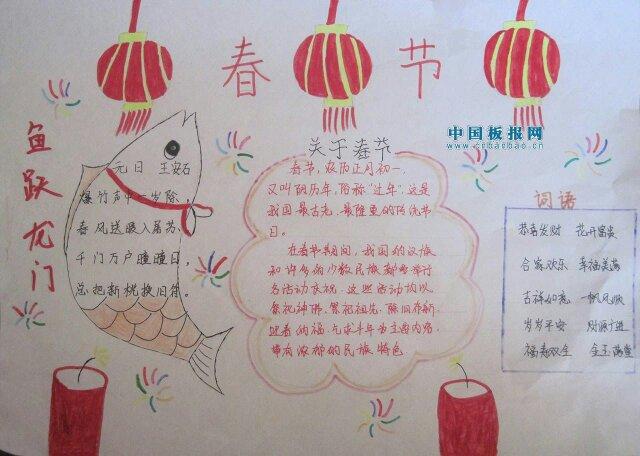 春节
中国板报网
www.cnbanbao.cn
鱼跃龙门
元日 王安石
爆竹声中一岁除,
春风送暖入屠苏,
千门万户曈曈日,
总把新桃换旧符。
关于春节
春节,农历正月初一,
又叫阴历年,俗称"过年",这是
我国最古老、最隆重的传统节
日。
在春节期间,我国的汉族
和许多的少数民族都要举行
各活动庆祝。这些活动均以
祭祀神佛、祭祀祖先、除旧布新、
迎春纳福、气求丰年为主要内容,
带有浓郁的民族特色
词语
恭喜发财 花开富贵
合家欢乐 幸福美满
吉祥如意 一帆风顺
岁岁平安 财源广进
福寿双全 金玉满堂